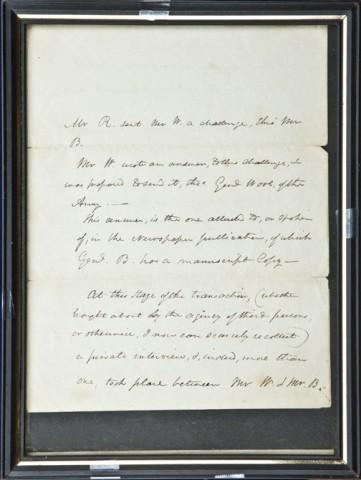 Mr R. sent Mr W. a challenge, thro' Mr
B.
Mr W. wrote an answer, to this challenge, &
was prepared to send it, thro' Genl Wool, of the
Army.—
This answer, is the one alluded to, or spoken
of, in the Newspaper publication, of which
Genl. B. has a manuscript Copy—
At this stage of the transaction, (whether
brought about by the agency of third persons,
or otherwise, I now can scarcely recollect)
a private interview, &, indeed, more than
one, took place between Mr W. & Mr. B.